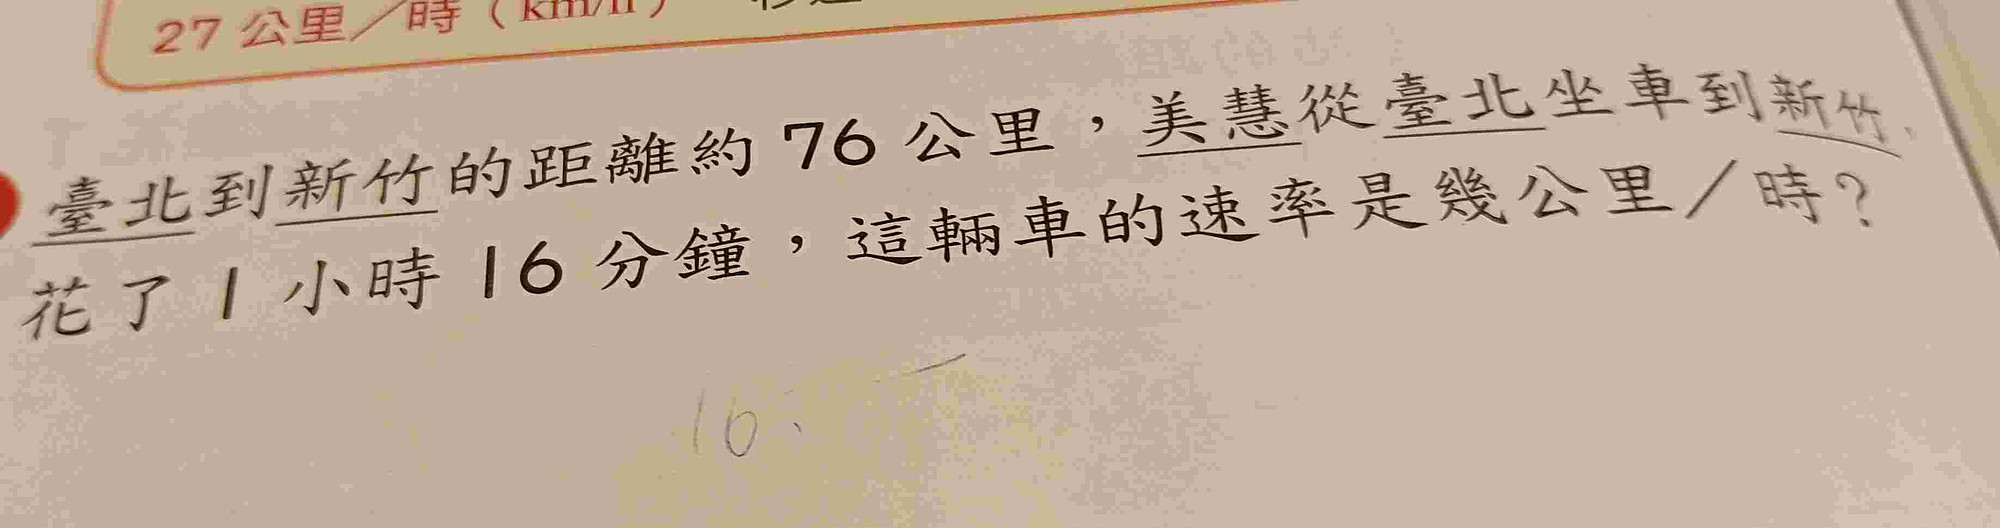 27 公里／時（km/h）
臺北到新竹的距離約 76 公里，美慧從臺北坐車到新竹，
花了 1 小時 16 分鐘，這輛車的速率是幾公里／時？
16